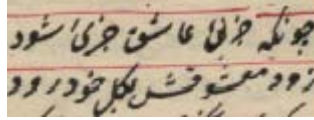 چونکه جزئی عاشق جزئی شود
زود معشوقش بکل خود رود